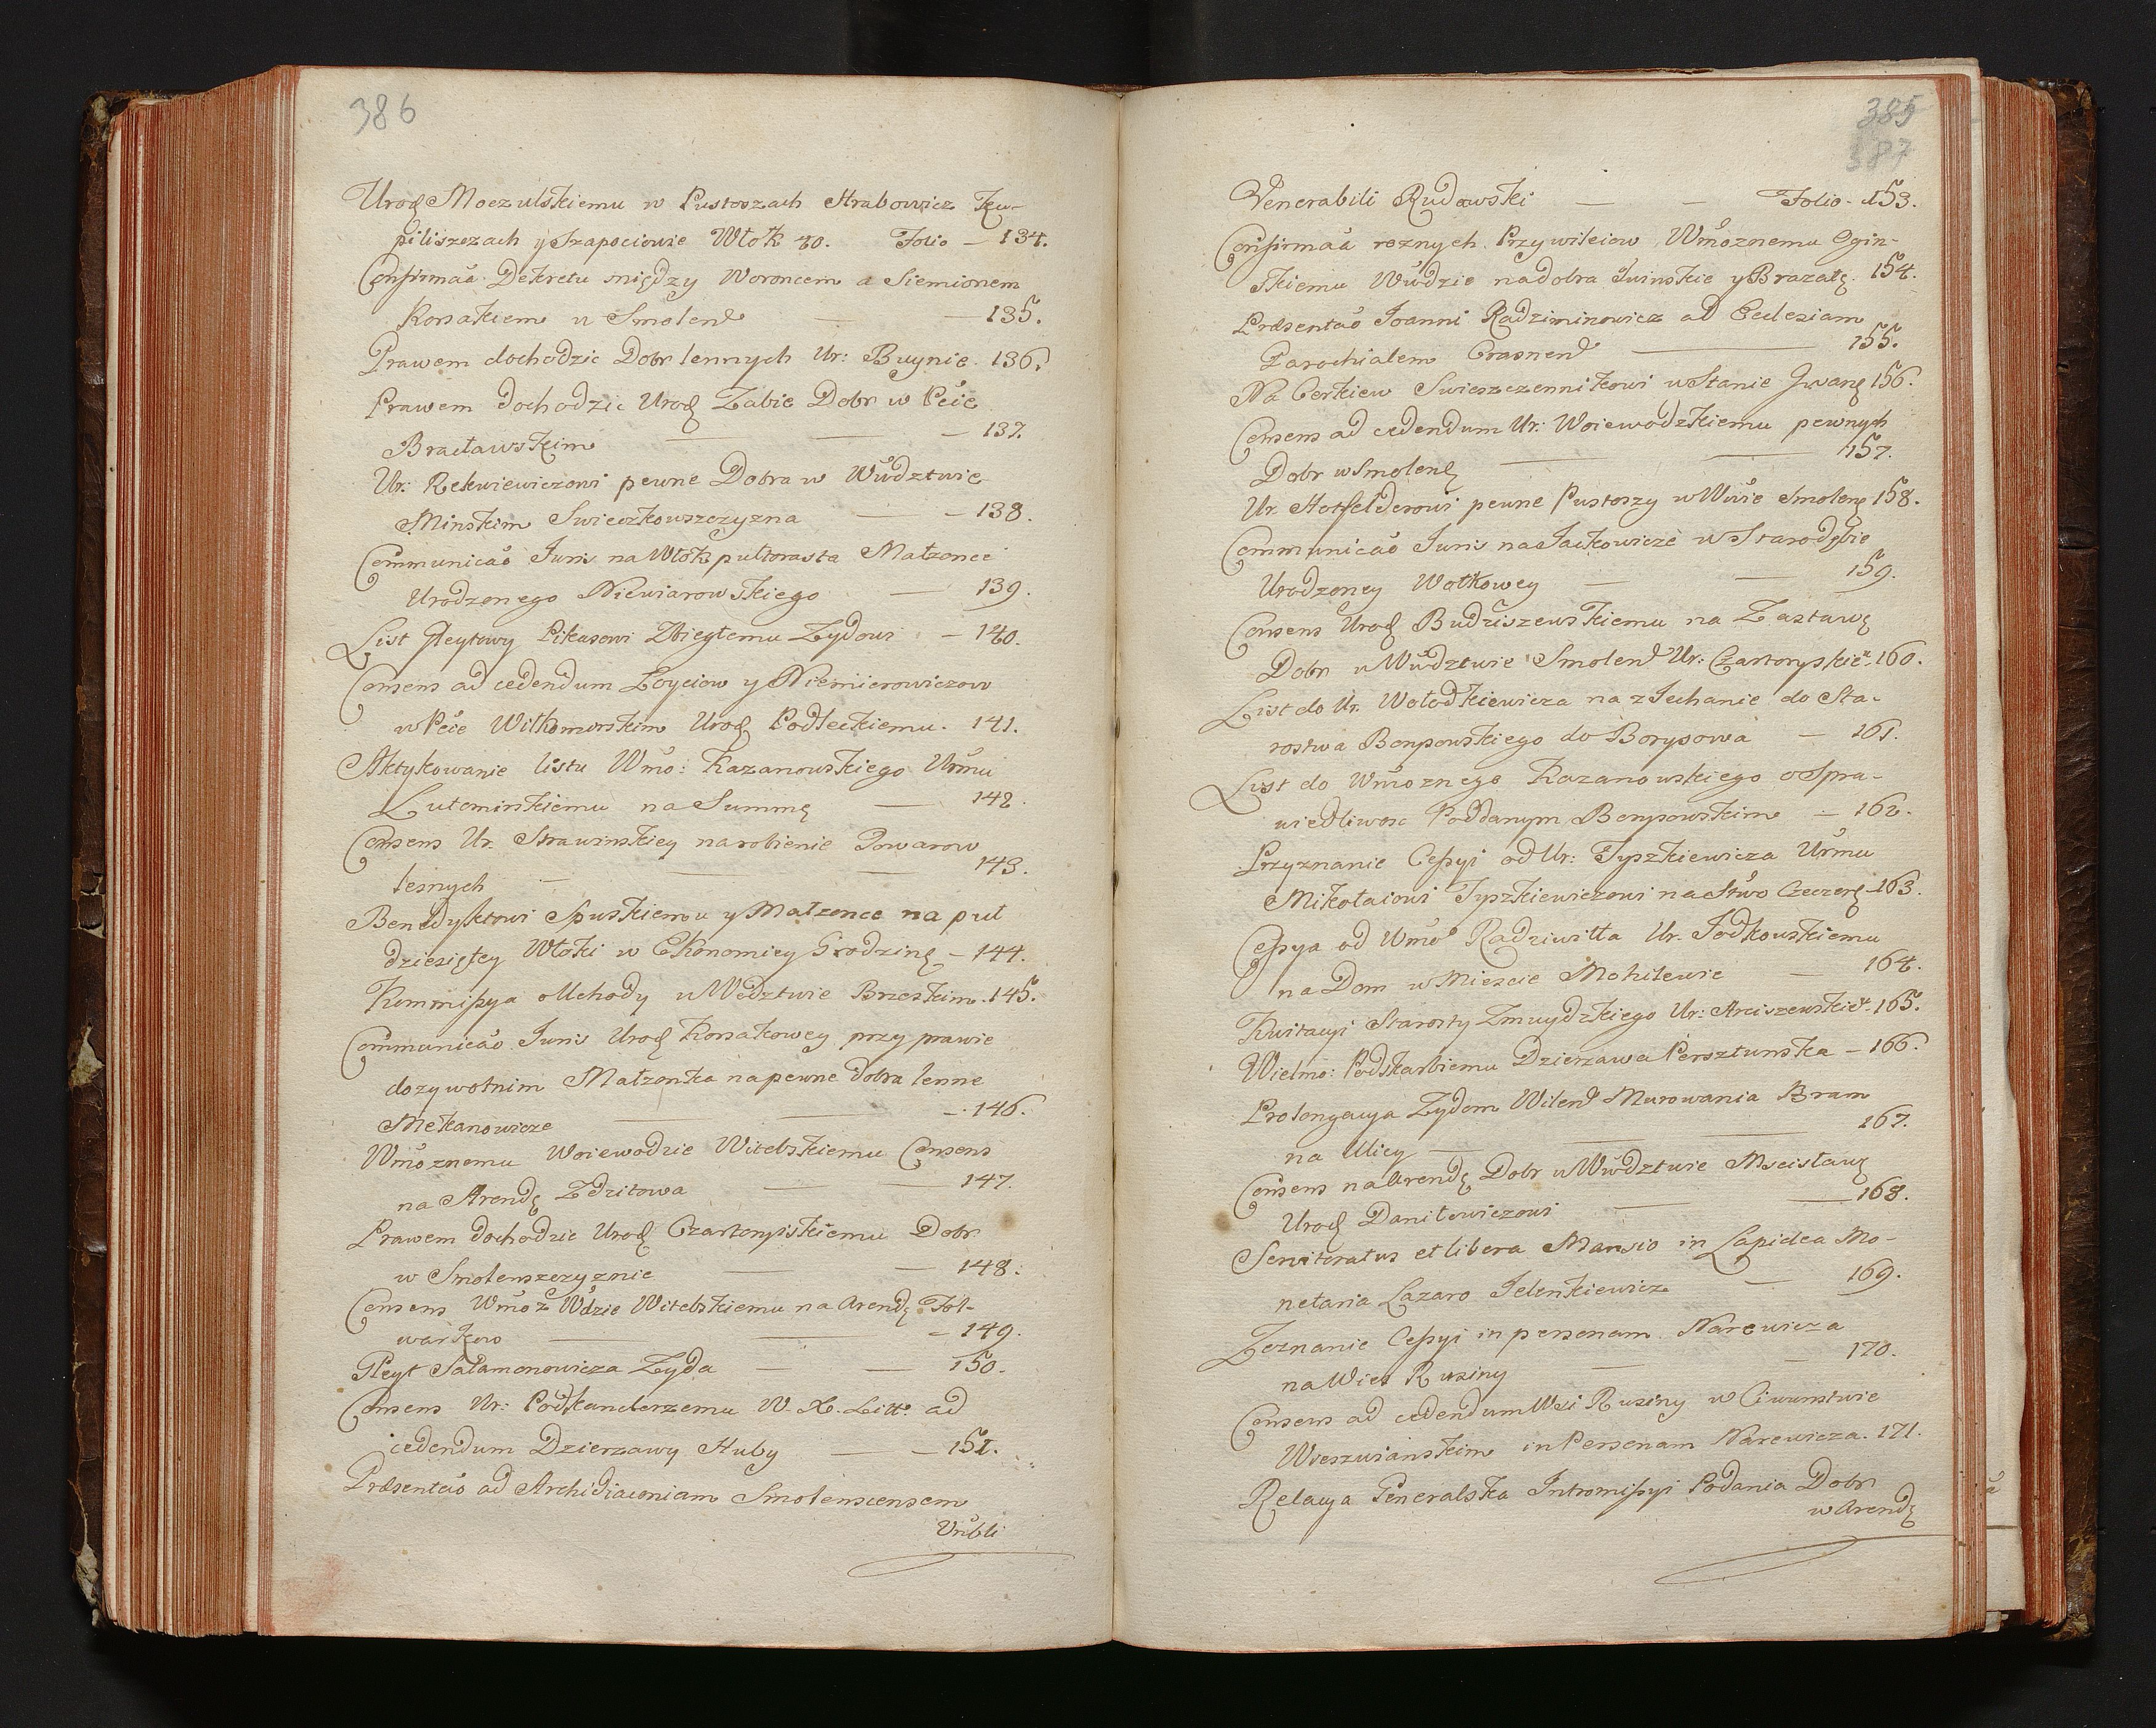 386
Urodz Moczulskiemu w Pustoszach Hrabowicz Ku-
piliszczach y Szapociowie Włok 40. Folio - 134.
Confirmaã Dekretu między Woroncem a Siemionem
Korsakiem w Smolenſ - 135.
Prawem dochodzic Dobr lennych Ur: Buynie. 136.
Prawem dochodzic Urodz Zabie Dobr w Pcie
Bracławskim - 137.
Ur: Rekwiewiczowi pewne Dobra w Wwdztwie
Minskim Swieczkowszczyzna - 138.
Communicaõ Juris na Włok pułtorasta Małzonce
Urodzonego Niewiarowskiego - 139.
List Gleytowy Pikasowi Zbiegłemu Zydowi - 140.
Consens ad cedendum Łoyciow y Niemierowiczow
w Pcie Wiłkomirskim Urodz Podleckiemu. 141.
Aktykowanie listu Wmo: Kazanowskiego Urmu
Lutominskiemu na Summę - 142.
Consens Ur. Strawinskiey na robienie Towarow
lesnych - 143.
Benedyktowi Spuskiemu y Małzonce na puł
dziesiętey Włoki w Ekonomiey Grodzinſ - 144.
Kommissya o Uchody w Wdztwie Brzeskim. 145.
Communicaõ Juris Urodz Korsakowey przy prawie
dozywotnim Małzonka na pewne dobra lenne
Mekanowicze - 146.
Wmoznemu Woiewodzie Witebskiemu Consens
na Arendę Zdzitowa - 147.
Prawem dochodzic Urodz Czartoryiskiemu Dobr
w Smolenszczyznie - 148.
Consens Wmoz Wdzie Witebskiemu na Arendę Fol-
warkow - 149.
Gleyt Salamonowicza Zyda - 150.
Consens Ur: Podkanclerzemu W. X. Litt. ad
cedendum Dzierzawy Huby - 151.
Præsentaõ ad Archidiaconiam Smolenscensem
Vnbli
385
387
Venerabili Rudowski - Folio - 153.
Confirmaã roznych Przywileiow Wmoznemu Ogin-
skiemu Wwdzie na dobra Iwinskie y Brazałę. 154.
Præsentaõ Joanni Radziminowicz ad Ecclesiam
Parochialem Crasnenſ - 155.
Na Cerkiew Swieszczennikowi w Stanie Iwanſ 156.
Consens ad cedendum Ur: Woiewodzkiemu pewnych
Dobr w Smolenſ - 157.
Ur. Hotfelderowi pewne Pustoszy w Wwie Smolenſ 158.
Communicaõ Juris na Jackowicze w Starodubie
Urodzoney Wołkowey - 159.
Consens Urodz Budziszewskiemu na Zastawę
Dobr w Wwdztwie Smolenſ Ur: Czartoryskieᵘ. 160.
List do Ur. Wołodkiewicza na zJechanie do Sta-
rostwa Borysowskiego do Borysowa - 161.
List do Wmoznego Kazanowskiego o Spra-
wiedliwosc Poddanym Borysowskim - 162.
Przyznanie Cessyi od Ur: Tyszkiewicza Urmu
Mikołaiowi Tyszkiewiczowi na Stwo Czeczerſ - 163.
Cessya od Wmo Radziwiłła Ur. Jodkowskiemu
na Dom w Miescie Mohilewie - 164.
Kwitacyi Starosty Zmuydzkiego Ur: Arciszewskieᵘ. 165.
Wielmo: Podskarbiemu Dzierzawa Persztunska - 166.
Prolongacya Zydom Wilenſ Murowania Bram
na Ulicy - 167.
Consens na Arendę Dobr w Wwdztwie Mscisławſ
Urodz Daniłowiczowi - 168.
Servitoratus et libera Mansio in Lapidea Mo-
netaria Lazaro Jelenkiewicz - 169.
Zeznanie Cessyi in personam Narewicza
na Wies Rusiny - 170.
Consens ad cedendum Wsi Rusiny w Ciwunstwie
Wieszwianskim in Personam Narewicza. 171.
Relacya Generalska Intromissyi Podania Dobr
w Arendę